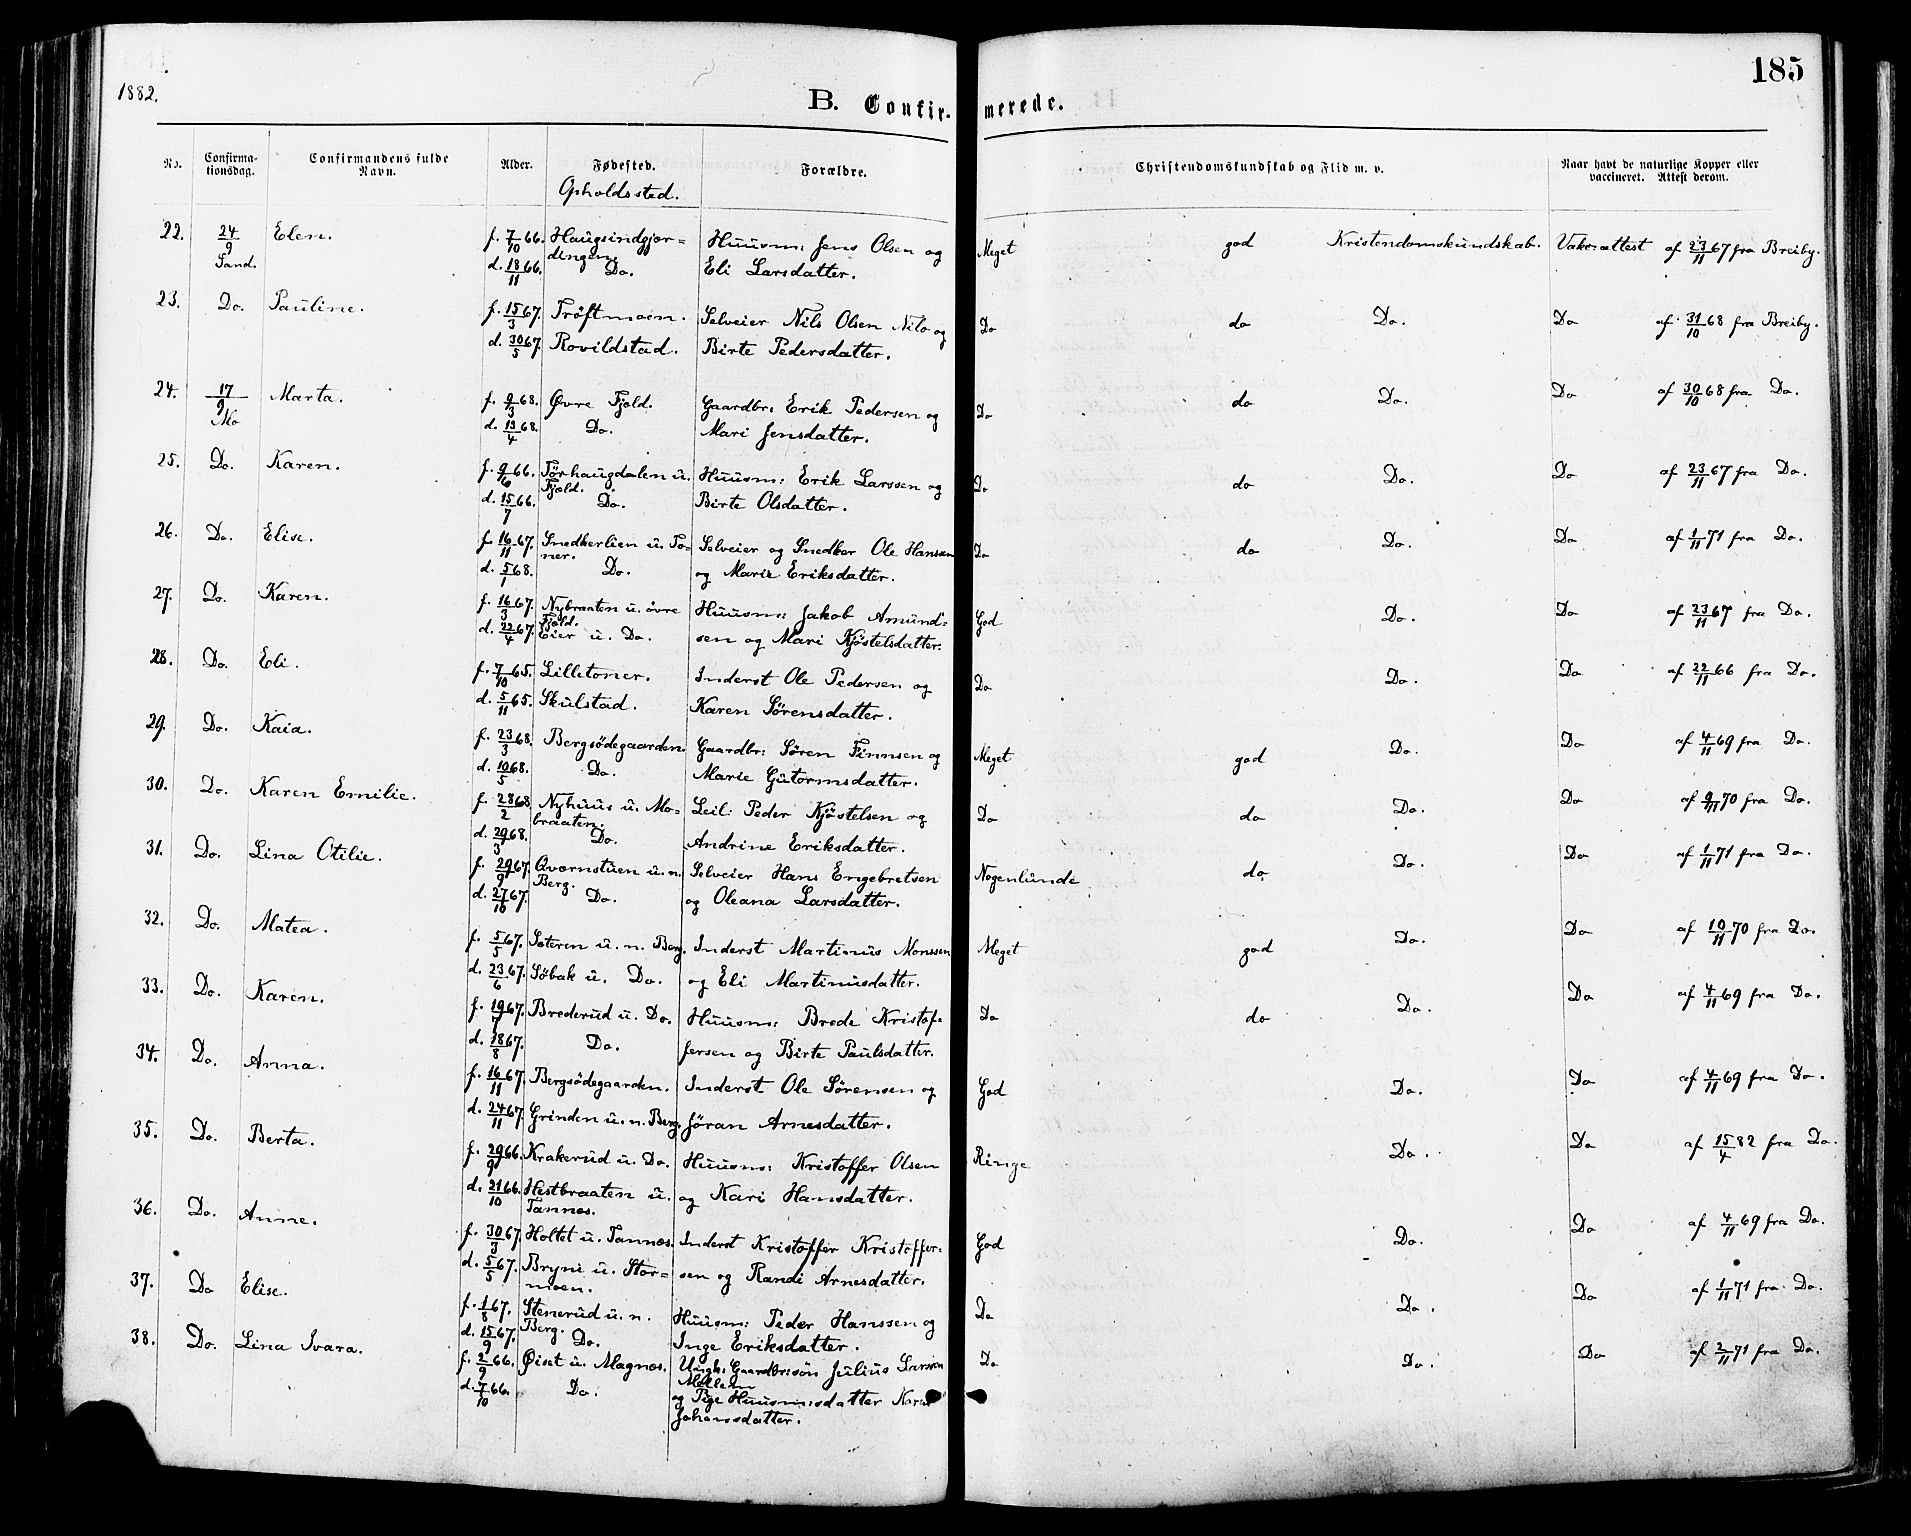 185
1882.
B. Confir- merede.
No. Confirma- Confirmandens fulde Alder. Fødested. Forældre. Christendomskundskab og Flid m. v. Naar havt de naturlige Kopper eller
tionsdag. Navn. Opholdssted. vaccineret. Attest derom.
22. 24/9 Elen. f. 7/10 66. Haugsindgjær- Huusm: Jens Olsen og Meget god Kristendomskundskab. Vakc:attest af 23/11 67 fra Breiby.
Sand. d. 18/11 66. dingen. Do. Eli Larsdatter.
23. Do. Pauline. f. 15/3 67. Trøftmoen. Selveier Nils Olsen Nilo og Do do Do. Do af 31/10 68 fra Breiby.
d. 30/5 67. Rovildstad. Birte Pedersdatter.
24. 17/9 Marta. f. 9/3 68. Øvre Fjeld. Gaardbr: Erik Pedersen og Do do Do. Do af 30/10 68 fra Do.
Mo d. 13/4 68. Do. Mari Jensdatter.
25. Do. Karen. f. 9/6 66. Tørhaugdalen u. Huusm: Erik Larssen og Do do Do. Do af 23/11 67 fra Do.
d. 15/7 66. Fjeld. Do. Birte Olsdatter.
26. Do. Elise. f. 16/11 67. Snedkerlien u. To- Selveier og Snedker Ole Hanssen Do do Do. Do af 1/11 71 fra Do.
d. 5/1 68. ner. Do. og Marie Eriksdatter.
27. Do. Karen. f. 16/3 67. Nybraaten u. øvre Huusm: Jakob Amund- God Do. Do af 23/11 67 fra Do.
Fjeld.
d. 22/4 67. Eier u. Do. sen og Mari Kjøstelsdatter.
28. Do. Eli. f. 7/10 65. Lilletoner. Inderst Ole Pedersen og Do Do. Do af 22/11 66 fra Do.
d. 5/11 65. Skulstad. Karen Sørensdatter.
29. Do. Kaia. f. 23/3 68. Bergsødegaarden. Gaardbr: Søren Finnsen og Meget god Do. Do af 4/11 69 fra Do.
d. 10/5 68. Do. Marie Gutormsdatter.
30. Do. Karen Emilie. f. 28/2 68. Nyhuus u. Mo- Leil: Peder Kjøstelsen og Do do Do. Do af 9/11 70 fra Do.
d. 29/3 68. braaten. Do. Andrine Eriksdatter.
31. Do. Lina Otilie. f. 29/9 67. Qværnstuen u. n. Selveier Hans Engebretsen Nogenlunde do Do. Do af 1/11 71 fra Do.
d. 27/10 67. Berg. Do. og Oleana Larsdatter.
32. Do. Matea. f. 5/5 67. Sæteren u. n. Berg. Inderst Martinus Monssen Meget god Do. Do af 10/11 70 fra Do.
d. 23/6 67. Søbak u. Do. og Eli Martinusdatter.
33. Do. Karen. f. 19/7 67. Brederud u. Do. Huusm: Brede Kristof- Do do Do. Do af 4/11 69 fra Do.
d. 18/8 67. Do. fersen og Birte Paulsdatter.
34. Do. Anna. f. 16/11 67. Bergsødegaarden. Inderst Ole Sørensen og God Do. Do af 4/11 69 fra Do.
d. 24/11 67. Grinden u. n. Berg. Jøran Arnesdatter.
35. Do. Berta. f. 29/9 66. Krakerud u. Do. Huusm: Kristoffer Olsen Ringe Do. Do af 15/4 82 fra Do.
d. 21/10 66. Hestbraaten u. og Kari Hansdatter.
Tannes.
36. Do. Anne. f. 30/3 67. Holtet u. Tannes. Inderst Kristoffer Kristoffer- God Do. Do af 4/11 69 fra Do.
d. 5/5 67. Bryni u. Stor- sen og Randi Arnesdatter.
moen.
37. Do Elise. f. 1/8 67. Stenerud u. n. Huusm: Peder Hanssen og Do Do. Do af 1/11 71 fra Do.
d. 15/9 67. Berg. Do. Inge Eriksdatter.
38. Do. Lina Svara. f. 2/9 66. Øiset u. Magnæs. Ungk. Gaardbr:søn Julius Larssen Do Do. Do af 2/11 71 fra Do.
d. 7/10 66. Do. og Pige Huusm:sdatter
Johansdatter.